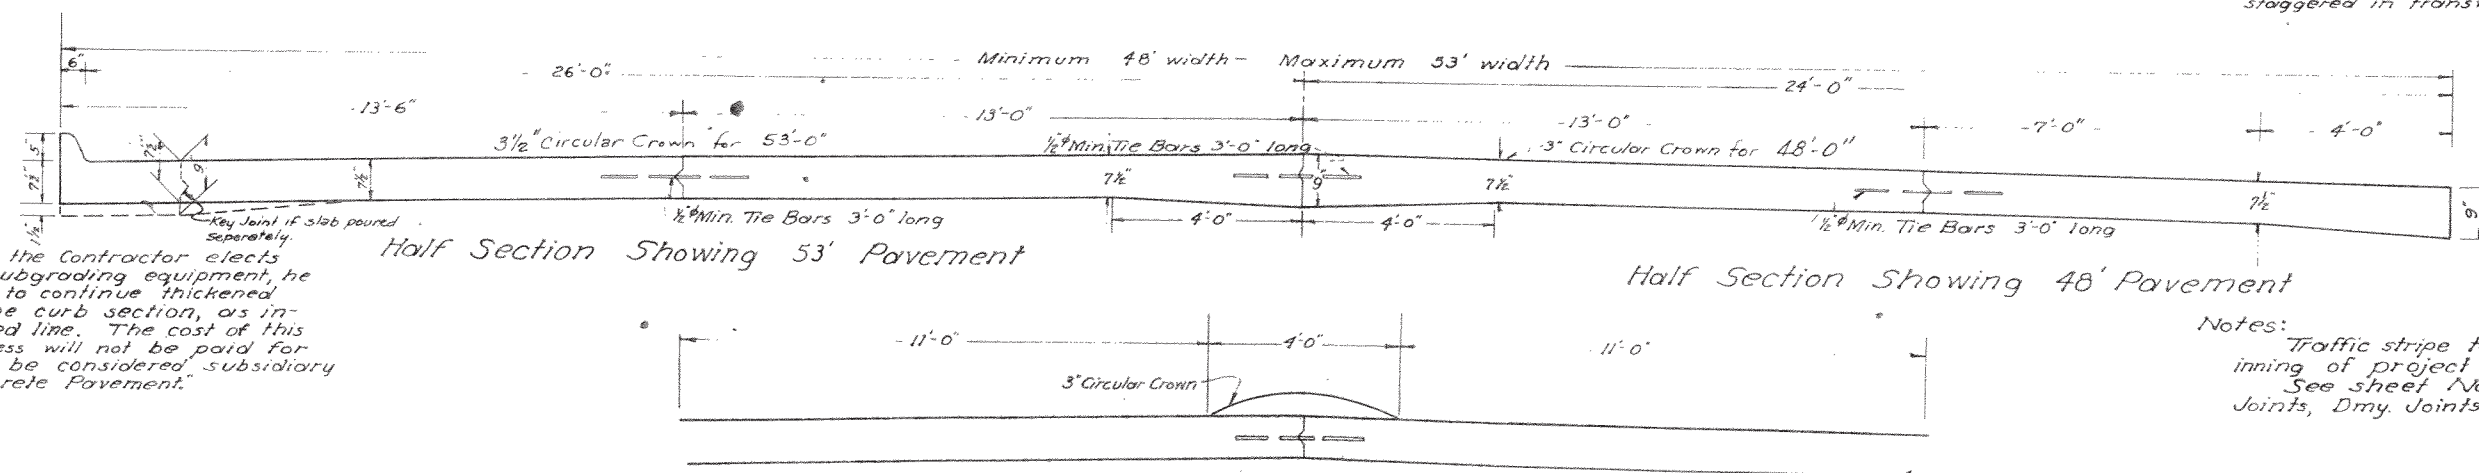 staggered in trans
Minimum 48' width - Maximum 53' width
6"
26'-0"
24'-0"
13'-6"
13'-0"
13'-0"
7'-0"
4'-0"
3½" Circular Crown for 53'-0"
½"ø Min. Tie Bars 3'-0" long
3" Circular Crown for 48'-0"
5"
7½"
1½"
7½"
9"
7½"
7½"
9"
7½"
7½"
9"
Key Joint if slab poured
seperately.
½"ø Min. Tie Bars 3'-0" long
4'-0"
4'-0"
½"ø Min. Tie Bars 3'-0" long
Half Section Showing 53' Pavement
Half Section Showing 48' Pavement
the Contractor elects
ubgrading equipment, he
to continue thickened
e curb section, as in-
ed line. The cost of this
ess will not be paid for
be considered subsidiary
rete Pavement."
11'-0"
4'-0"
11'-0"
3" Circular Crown
Notes:
Traffic stripe t
inning of project
See sheet No
Joints, Dmy. Joints